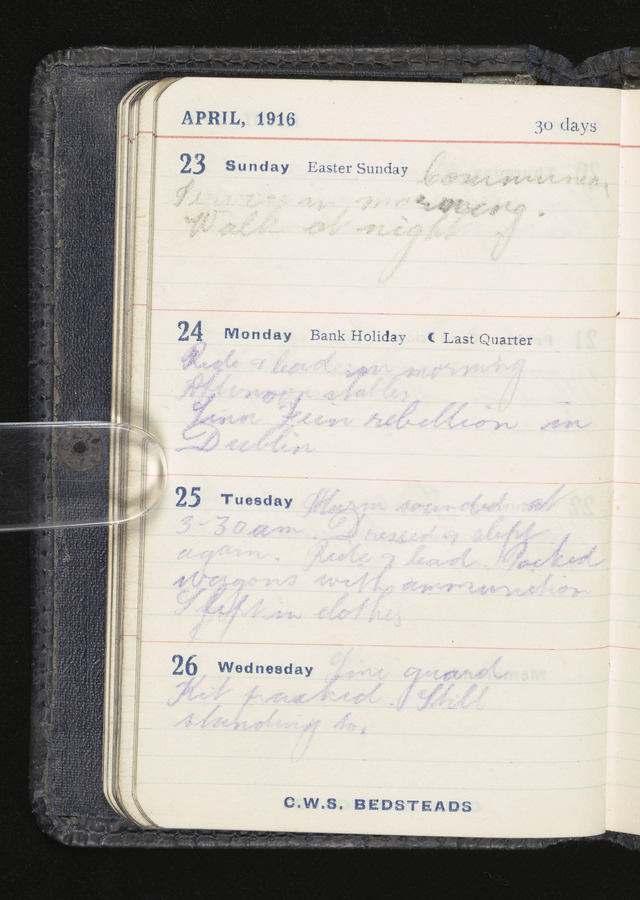 APRIL, 1916 30 days
23 Sunday Easter Sunday Communion
Service in morning.
Walk at night
24 Monday Bank Holiday ☾ Last Quarter
Ride & lead in morning
Afternoon stables
Sinn Fein rebellion in
Dublin
25 Tuesday Alarm sounded at
3-30 am. Dressed & slept
again. Ride & lead. Packed
wagons with ammunition
Slept in clothes
26 Wednesday Fire guard
Kit packed. Still
standing to.
C.W.S. BEDSTEADS